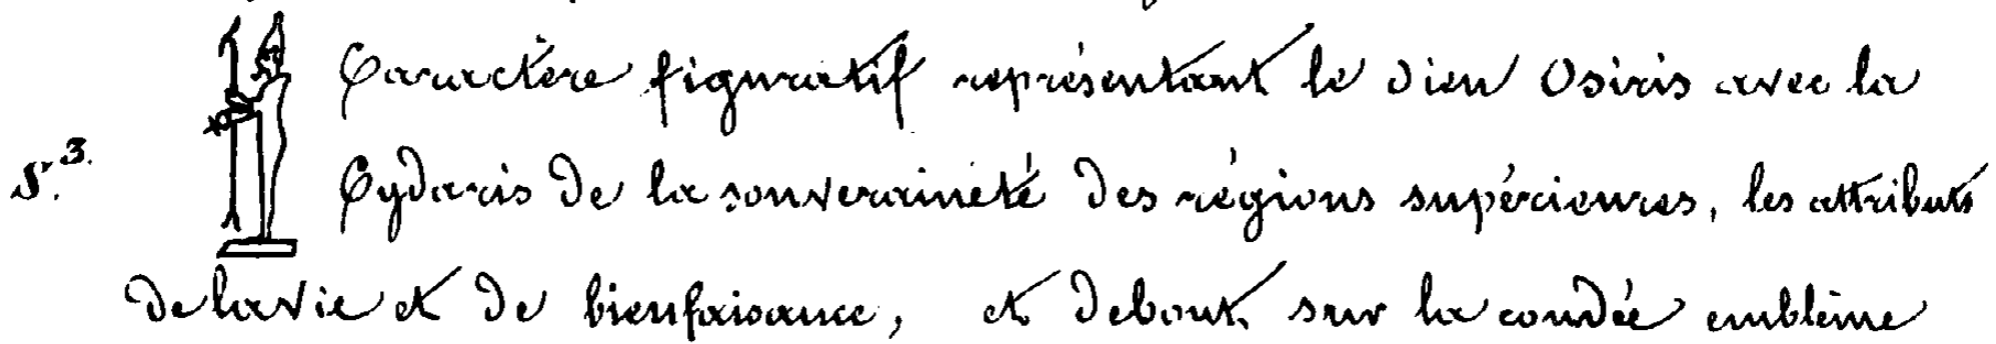 Caractère figuratif représentant le dieu Osiris avec la
S.3. Cydaris de la souveraineté des régions supérieures, les attributs
de la vie et de bienfaisance, et debout sur la coudée emblême